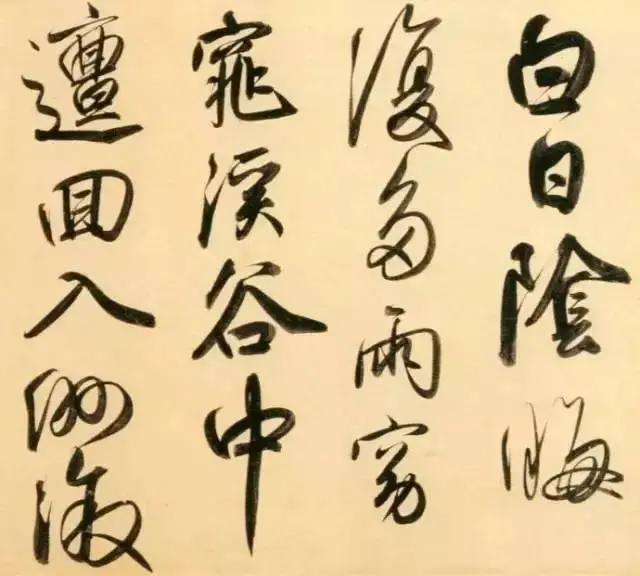 白日陰晦
復多雨窈
窕溪谷中
邅回入洲漵